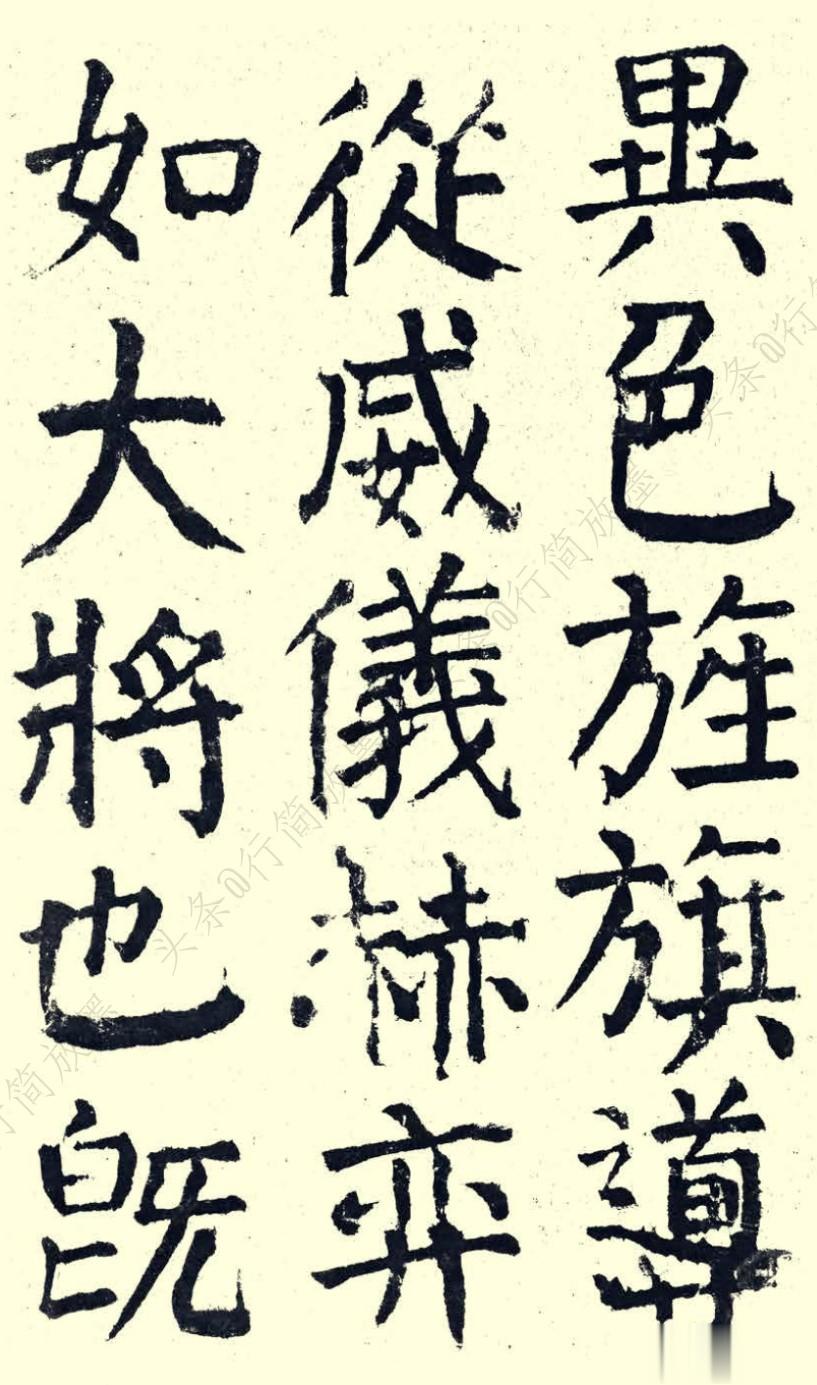 異色旌旗導
從威儀赫弈
如大將也既
头条@行简
头条@行简放墨
头条@行简放墨
行简放墨